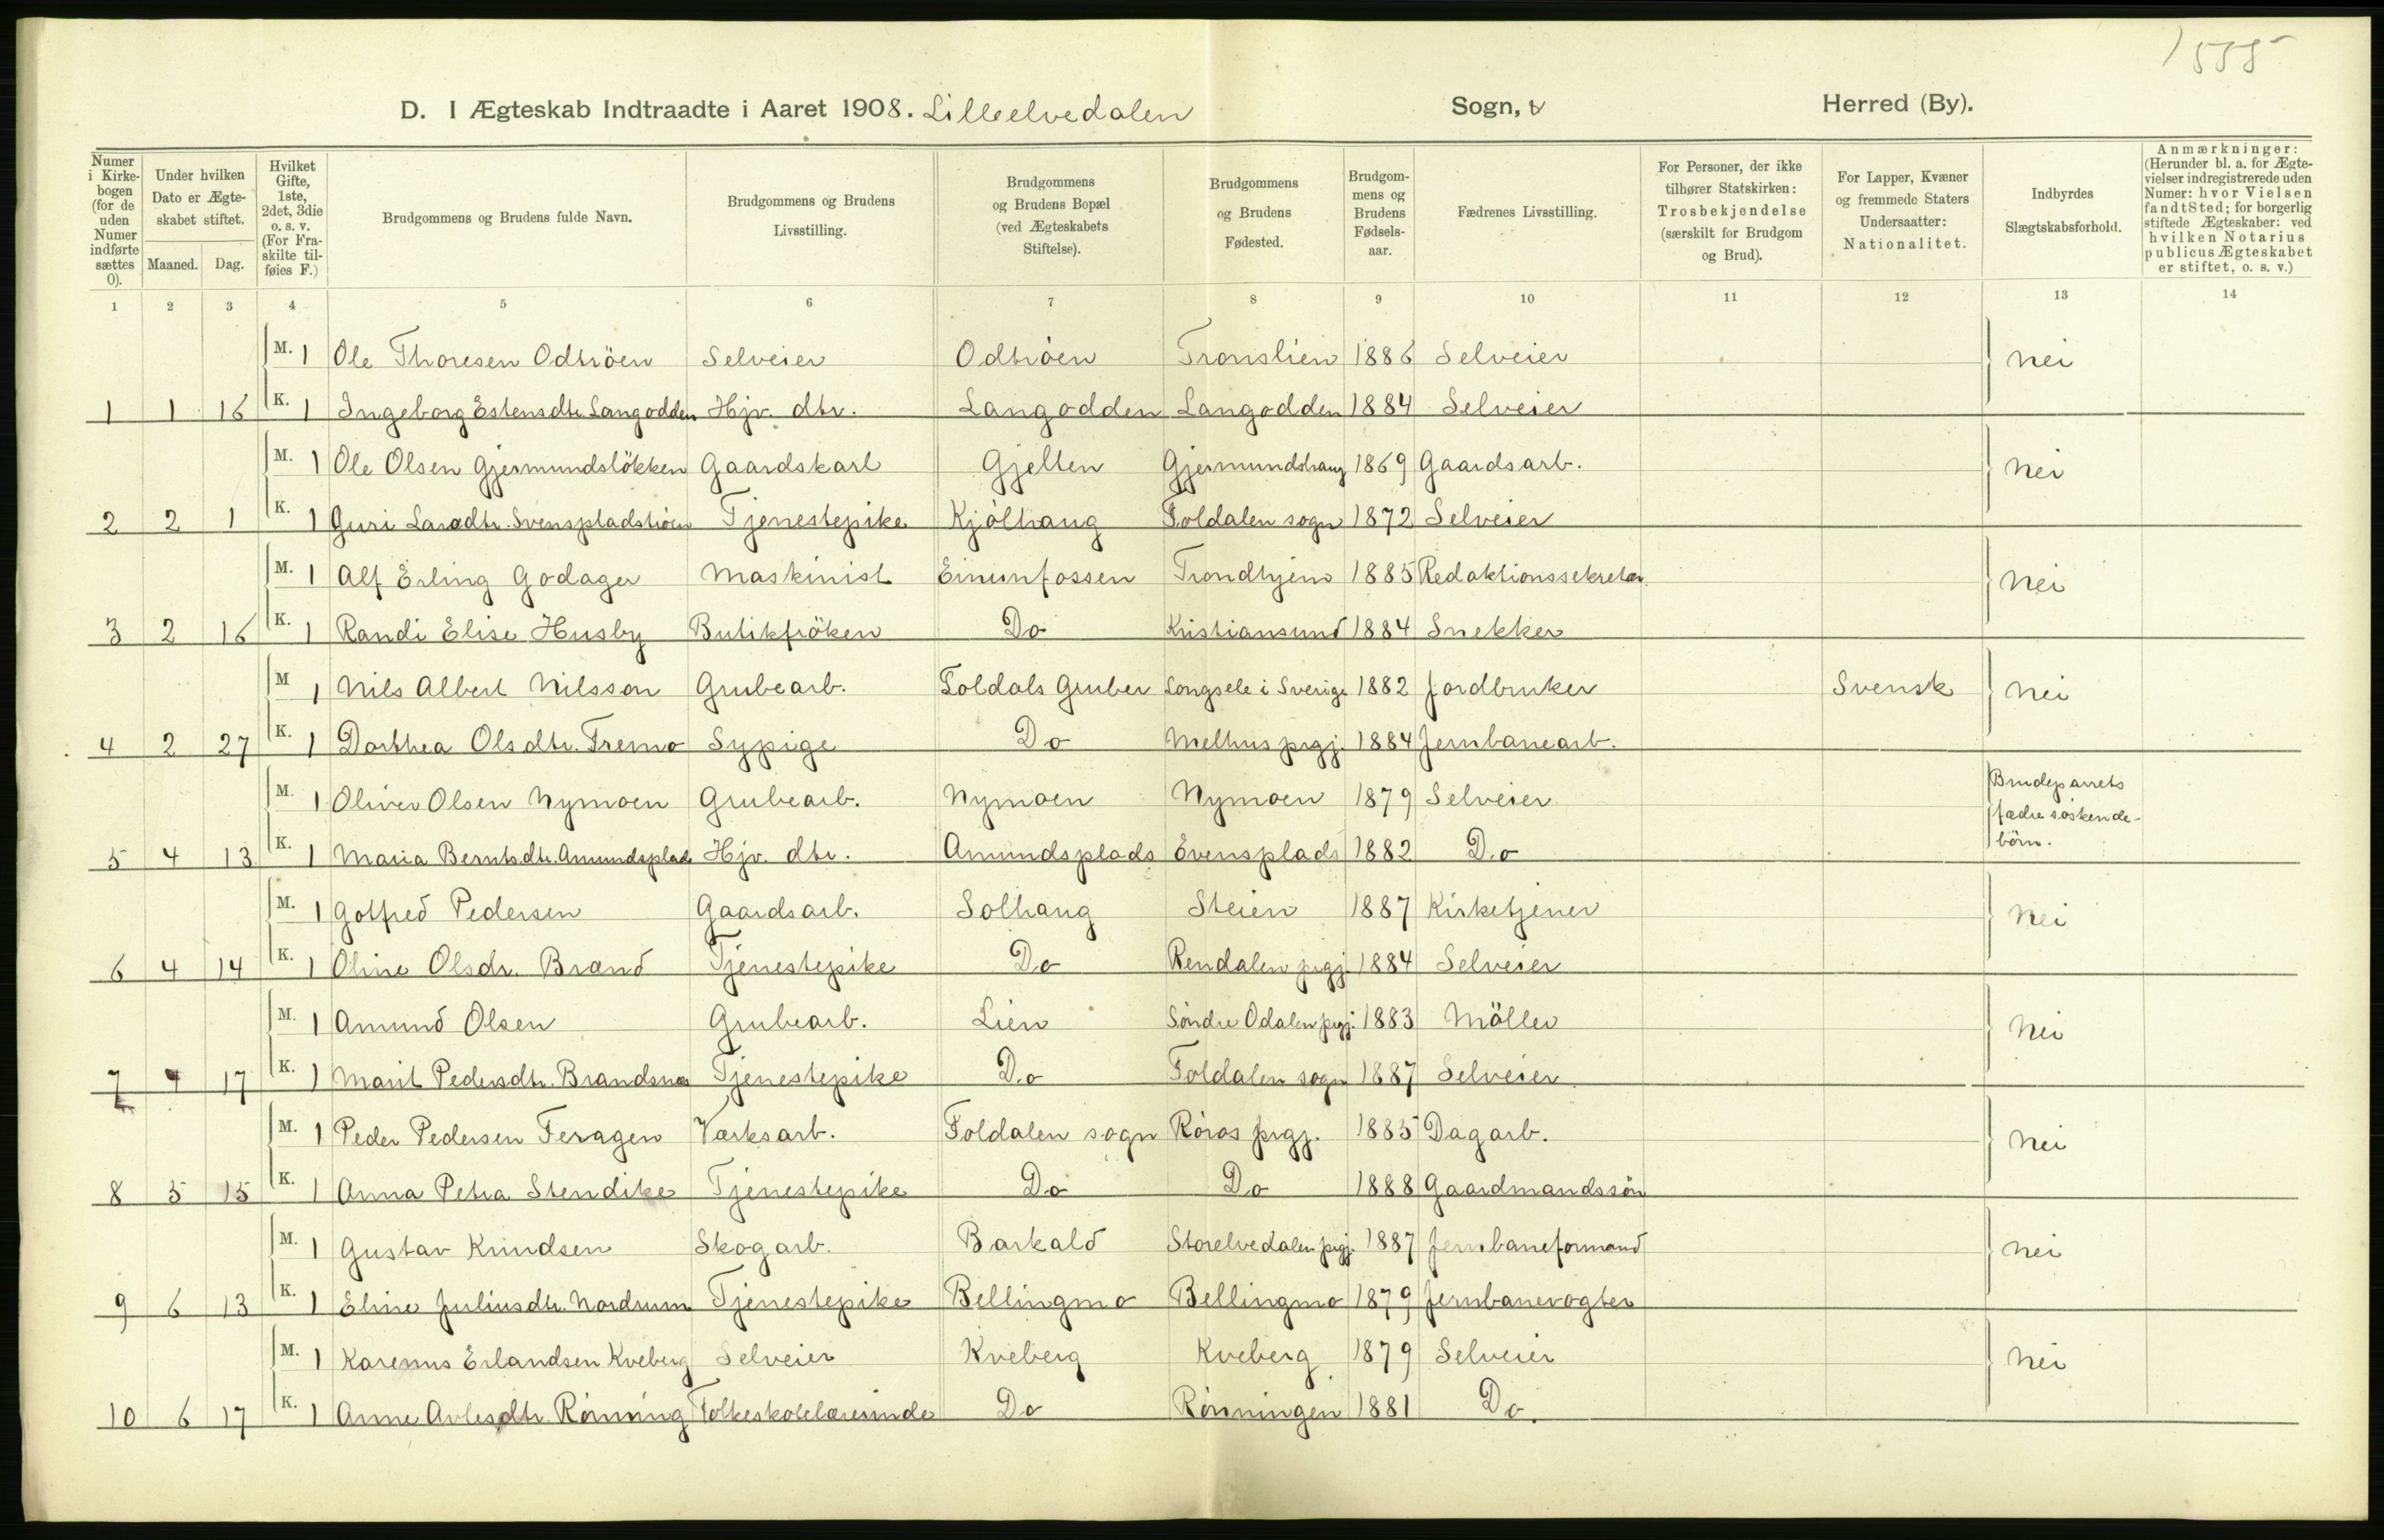 1555
D. I Ægteskab Indtraadte i Aaret 1908. Lilleelvedalen Sogn, & Herred (By).
Numer i Kirkebogen (for de uden Numer indførte sættes 0). | Under hvilken Dato er Ægteskabet stiftet. Maaned. Dag. | Hvilket Gifte, 1ste, 2det, 3die o. s. v. (For Fraskilte tilføies F.) | Brudgommens og Brudens fulde Navn. | Brudgommens og Brudens Livsstilling. | Brudgommens og Brudens Bopæl (ved Ægteskabets Stiftelse). | Brudgommens og Brudens Fødested. | Brudgommens og Brudens Fødselsaar. | Fædrenes Livsstilling. | For Personer, der ikke tilhører Statskirken: Trosbekjendelse (særskilt for Brudgom og Brud). | For Lapper, Kvæner og fremmede Staters Undersaatter: Nationalitet. | Indbyrdes Slægtskabsforhold. | Anmærkninger: (Herunder bl. a. for Ægtevielser indregistrerede uden Numer: hvor Vielsen fandt Sted; for borgerlig stiftede Ægteskaber: ved hvilken Notarius publicus Ægteskabet er stiftet, o. s. v.)
1 2 3 4 5 6 7 8 9 10 11 12 13 14
M. 1 Ole Thoresen Odtröen Selveier Odtröen Tronslien 1886 Selveier nei
1 1 16 K. 1 Ingeborg Estensdtr. Langodden Hjv. dtr. Langodden Langodden 1884 Selveier
M. 1 Ole Olsen Gjermundslökken Gaardskarl Gjelten Gjermundshaug 1869 Gaardsarb. nei
2 2 1 K. 1 Guri Larsdtr. Svenspladströen Tjenestepike Kjölhaug Foldalen sogn 1872 Selveier
M. 1 Alf Erling Godager Maskinist Einunfossen Trondhjem 1885 Redaktionssekretær nei
3 2 16 K. 1 Randi Elise Husby Butikfröken Do Kristiansund 1884 Snekker
M 1 Nils Albert Nilsson Grubearb. Foldals Gruber Longsele i Sverige 1882 Jordbruker Svensk nei
4 2 27 K. 1 Dorthea Olsdtr. Fremo Sypige Do Melhus prgj. 1884 Jernbanearb.
M. 1 Oliver Olsen Nymoen Grubearb. Nymoen Nymoen 1879 Selveier Brudeparrets fædre söskende-börn.
5 4 13 K. 1 Maria Berntsdtr. Amundsplads Hjv. dtr. Amundsplads Evensplads 1882 Do
M. 1 Golfred Pedersen Gaardsarb. Solhaug Steien 1887 Kirketjener nei
6 4 14 K. 1 Oline Olsdr. Brænd Tjenestepike Do Rendalen prgj. 1884 Selveier
M. 1 Amund Olsen Grubearb. Lien Söndre Odalen prgj. 1883 Möller nei
7 4 17 K. 1 Marit Pedersdtr. Brandsnes Tjenestepike Do Foldalen sogn 1887 Selveier
M. 1 Peder Pedersen Feragen Værksarb. Foldalen sogn Röros prgj. 1885 Dagarb. nei
8 5 15 K. 1 Anna Petra Stendike Tjenestepike Do Do 1888 Gaardmandssön
M. 1 Gustav Knudsen Skogarb. Barkald Storelvedalen prgj. 1887 Jernbaneformand nei
9 6 13 K. 1 Eline Juliusdtr. Nordrum Tjenestepike Bellingmo Bellingmo 1879 Jernbanevogter
M. 1 Karenus Erlandsen Kveberg Selveier Kveberg Kveberg 1879 Selveier nei
10 6 17 K. 1 Anne Avlesdtr. Rönning Folkeskolelærerinde Do Rönningen 1881 Do.